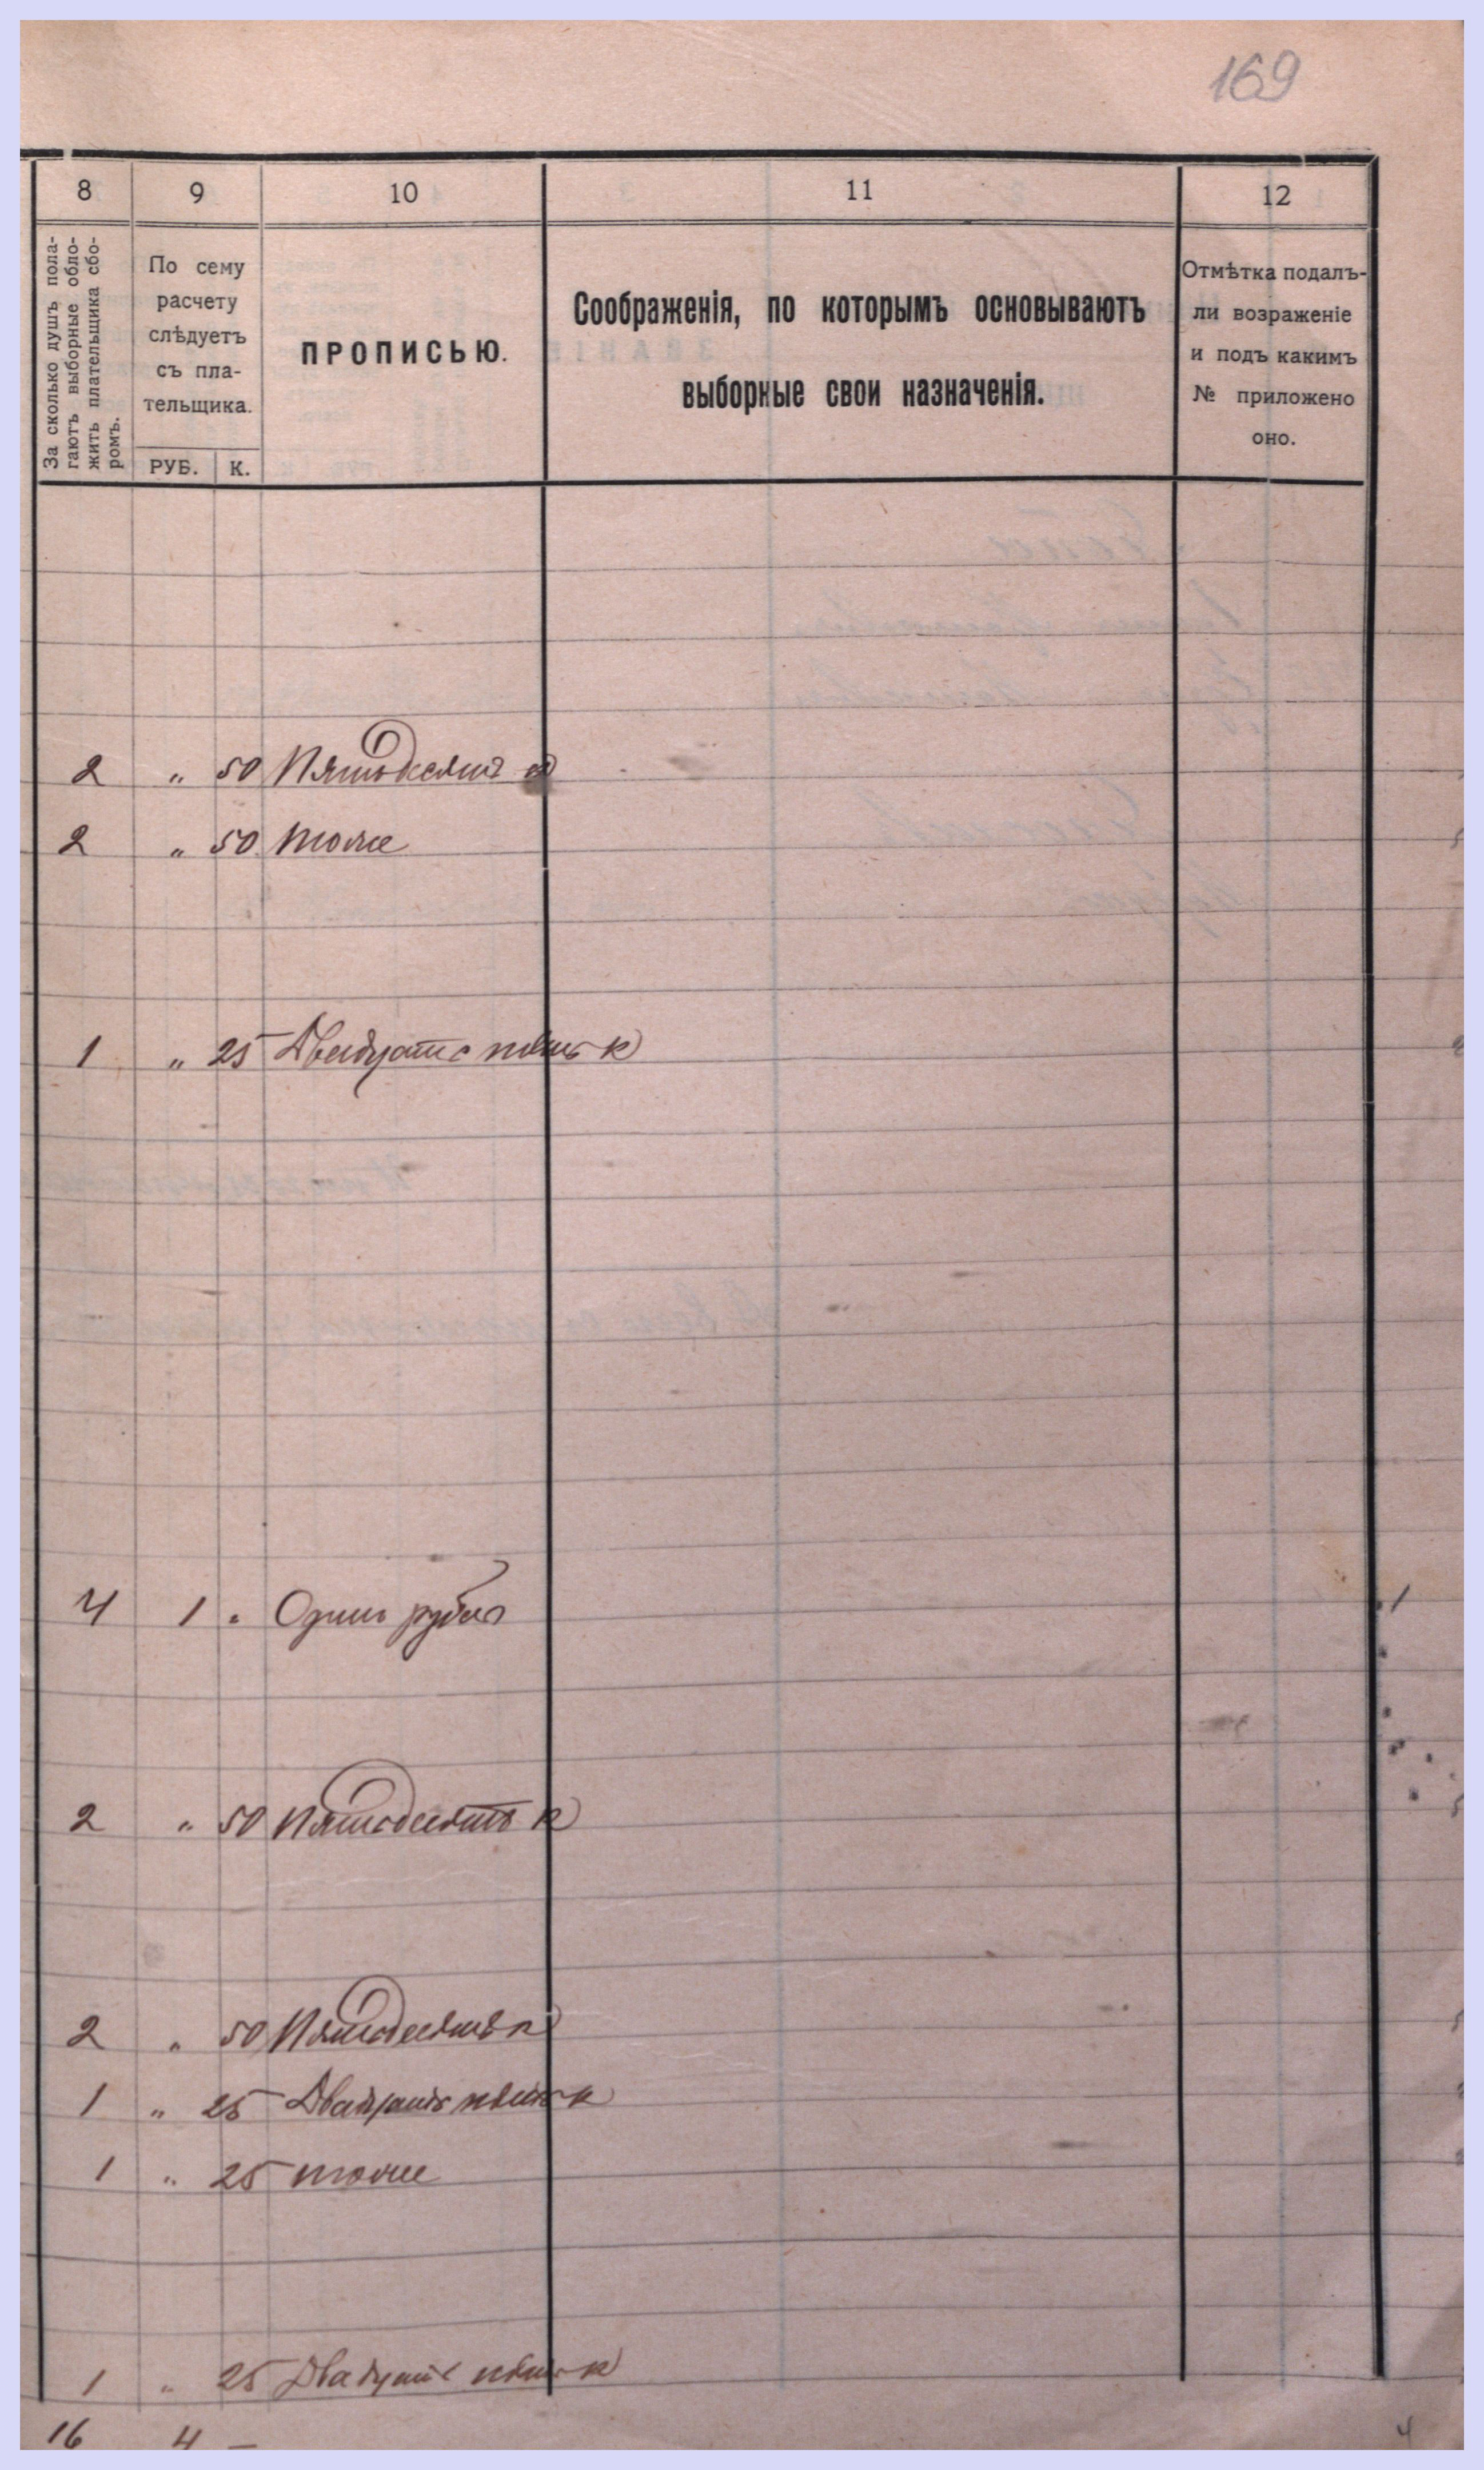 169
8 9 10 11 12
За сколько душъ пола-
гаютъ выборные обло-
жить плательщика сбо-
ромъ.
По сему
расчету
слѣдуетъ
съ пла-
тельщика.
РУБ. К.
ПРОПИСЬЮ.
Соображенія, по которымъ основываютъ
выборные свои назначенія.
Отмѣтка подалъ-
ли возраженіе
и подъ какимъ
№ приложено
оно.
2 " 50 Пятьдесятъ к
2 " 50 тоже
1 " 25 Двадцать пять к
4 1 " Одинъ рубль
1
2 " 50 Пятьдесятъ к
2 " 50 Пятьдесятъ к
1 " 25 Двадцать пять к
1 " 25 тоже
1 " 25 Двадцать пять к
16 4 —
4